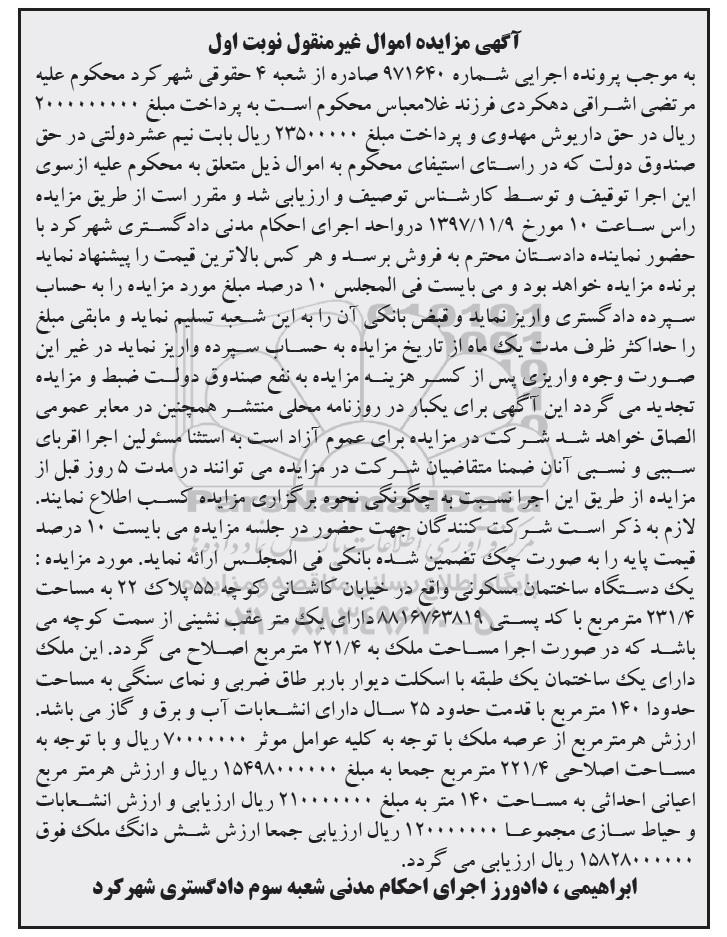 آگهی مزایده اموال غیرمنقول نوبت اول
به موجب پرونده اجرایی شماره ۹۷۱۶۴۰ صادره از شعبه ۴ حقوقی شهرکرد محکوم علیه
مرتضی اشراقی دهکردی فرزند غلامعباس محکوم است به پرداخت مبلغ ۲۰۰۰۰۰۰۰۰۰
ریال در حق داریوش مهدوی و پرداخت مبلغ ۲۳۵۰۰۰۰۰ ریال بابت نیم عشردولتی در حق
صندوق دولت که در راستای استیفای محکوم به اموال ذیل متعلق به محکوم علیه ازسوی
این اجرا توقیف و توسط کارشناس توصیف و ارزیابی شد و مقرر است از طریق مزایده
راس ساعت ۱۰ مورخ ۱۳۹۷/۱۱/۹ درواحد اجرای احکام مدنی دادگستری شهرکرد با
حضور نماینده دادستان محترم به فروش برسد و هر کس بالاترین قیمت را پیشنهاد نماید
برنده مزایده خواهد بود و می بایست فی المجلس ۱۰ درصد مبلغ مورد مزایده را به حساب
سپرده دادگستری واریز نماید و قبض بانکی آن را به این شعبه تسلیم نماید و مابقی مبلغ
را حداکثر ظرف مدت یک ماه از تاریخ مزایده به حساب سپرده واریز نماید در غیر این
صورت وجوه واریزی پس از کسر هزینه مزایده به نفع صندوق دولت ضبط و مزایده
تجدید می گردد این آگهی برای یکبار در روزنامه محلی منتشر همچنین در معابر عمومی
الصاق خواهد شد شرکت در مزایده برای عموم آزاد است به استثنا مسئولین اجرا اقربای
سببی و نسبی آنان ضمنا متقاضیان شرکت در مزایده می توانند در مدت ۵ روز قبل از
مزایده از طریق این اجرا نسبت به چگونگی نحوه برگزاری مزایده کسب اطلاع نمایند.
لازم به ذکر است شرکت کنندگان جهت حضور در جلسه مزایده می بایست ۱۰ درصد
قیمت پایه را به صورت چک تضمین شده بانکی فی المجلس ارائه نماید. مورد مزایده :
یک دستگاه ساختمان مسکونی واقع در خیابان کاشانی کوچه ۵۵ پلاک ۲۲ به مساحت
۲۳۱/۴ مترمربع با کد پستی ۸۸۱۶۷۶۳۸۱۹ دارای یک متر عقب نشینی از سمت کوچه می
باشد که در صورت اجرا مساحت ملک به ۲۲۱/۴ مترمربع اصلاح می گردد. این ملک
دارای یک ساختمان یک طبقه با اسکلت دیوار باربر طاق ضربی و نمای سنگی به مساحت
حدودا ۱۴۰ مترمربع با قدمت حدود ۲۵ سال دارای انشعابات آب و برق و گاز می باشد.
ارزش هرمترمربع از عرصه ملک با توجه به کلیه عوامل موثر ۷۰۰۰۰۰۰۰ ریال و با توجه به
مساحت اصلاحی ۲۲۱/۴ مترمربع جمعا به مبلغ ۱۵۴۹۸۰۰۰۰۰۰ ریال و ارزش هرمتر مربع
اعیانی احداثی به مساحت ۱۴۰ متر به مبلغ ۲۱۰۰۰۰۰۰۰ ریال ارزیابی و ارزش انشعابات
و حیاط سازی مجموعا ۱۲۰۰۰۰۰۰۰ ریال ارزیابی جمعا ارزش شش دانگ ملک فوق
۱۵۸۲۸۰۰۰۰۰۰ ریال ارزیابی می گردد.
ابراهیمی ، دادورز اجرای احکام مدنی شعبه سوم دادگستری شهرکرد